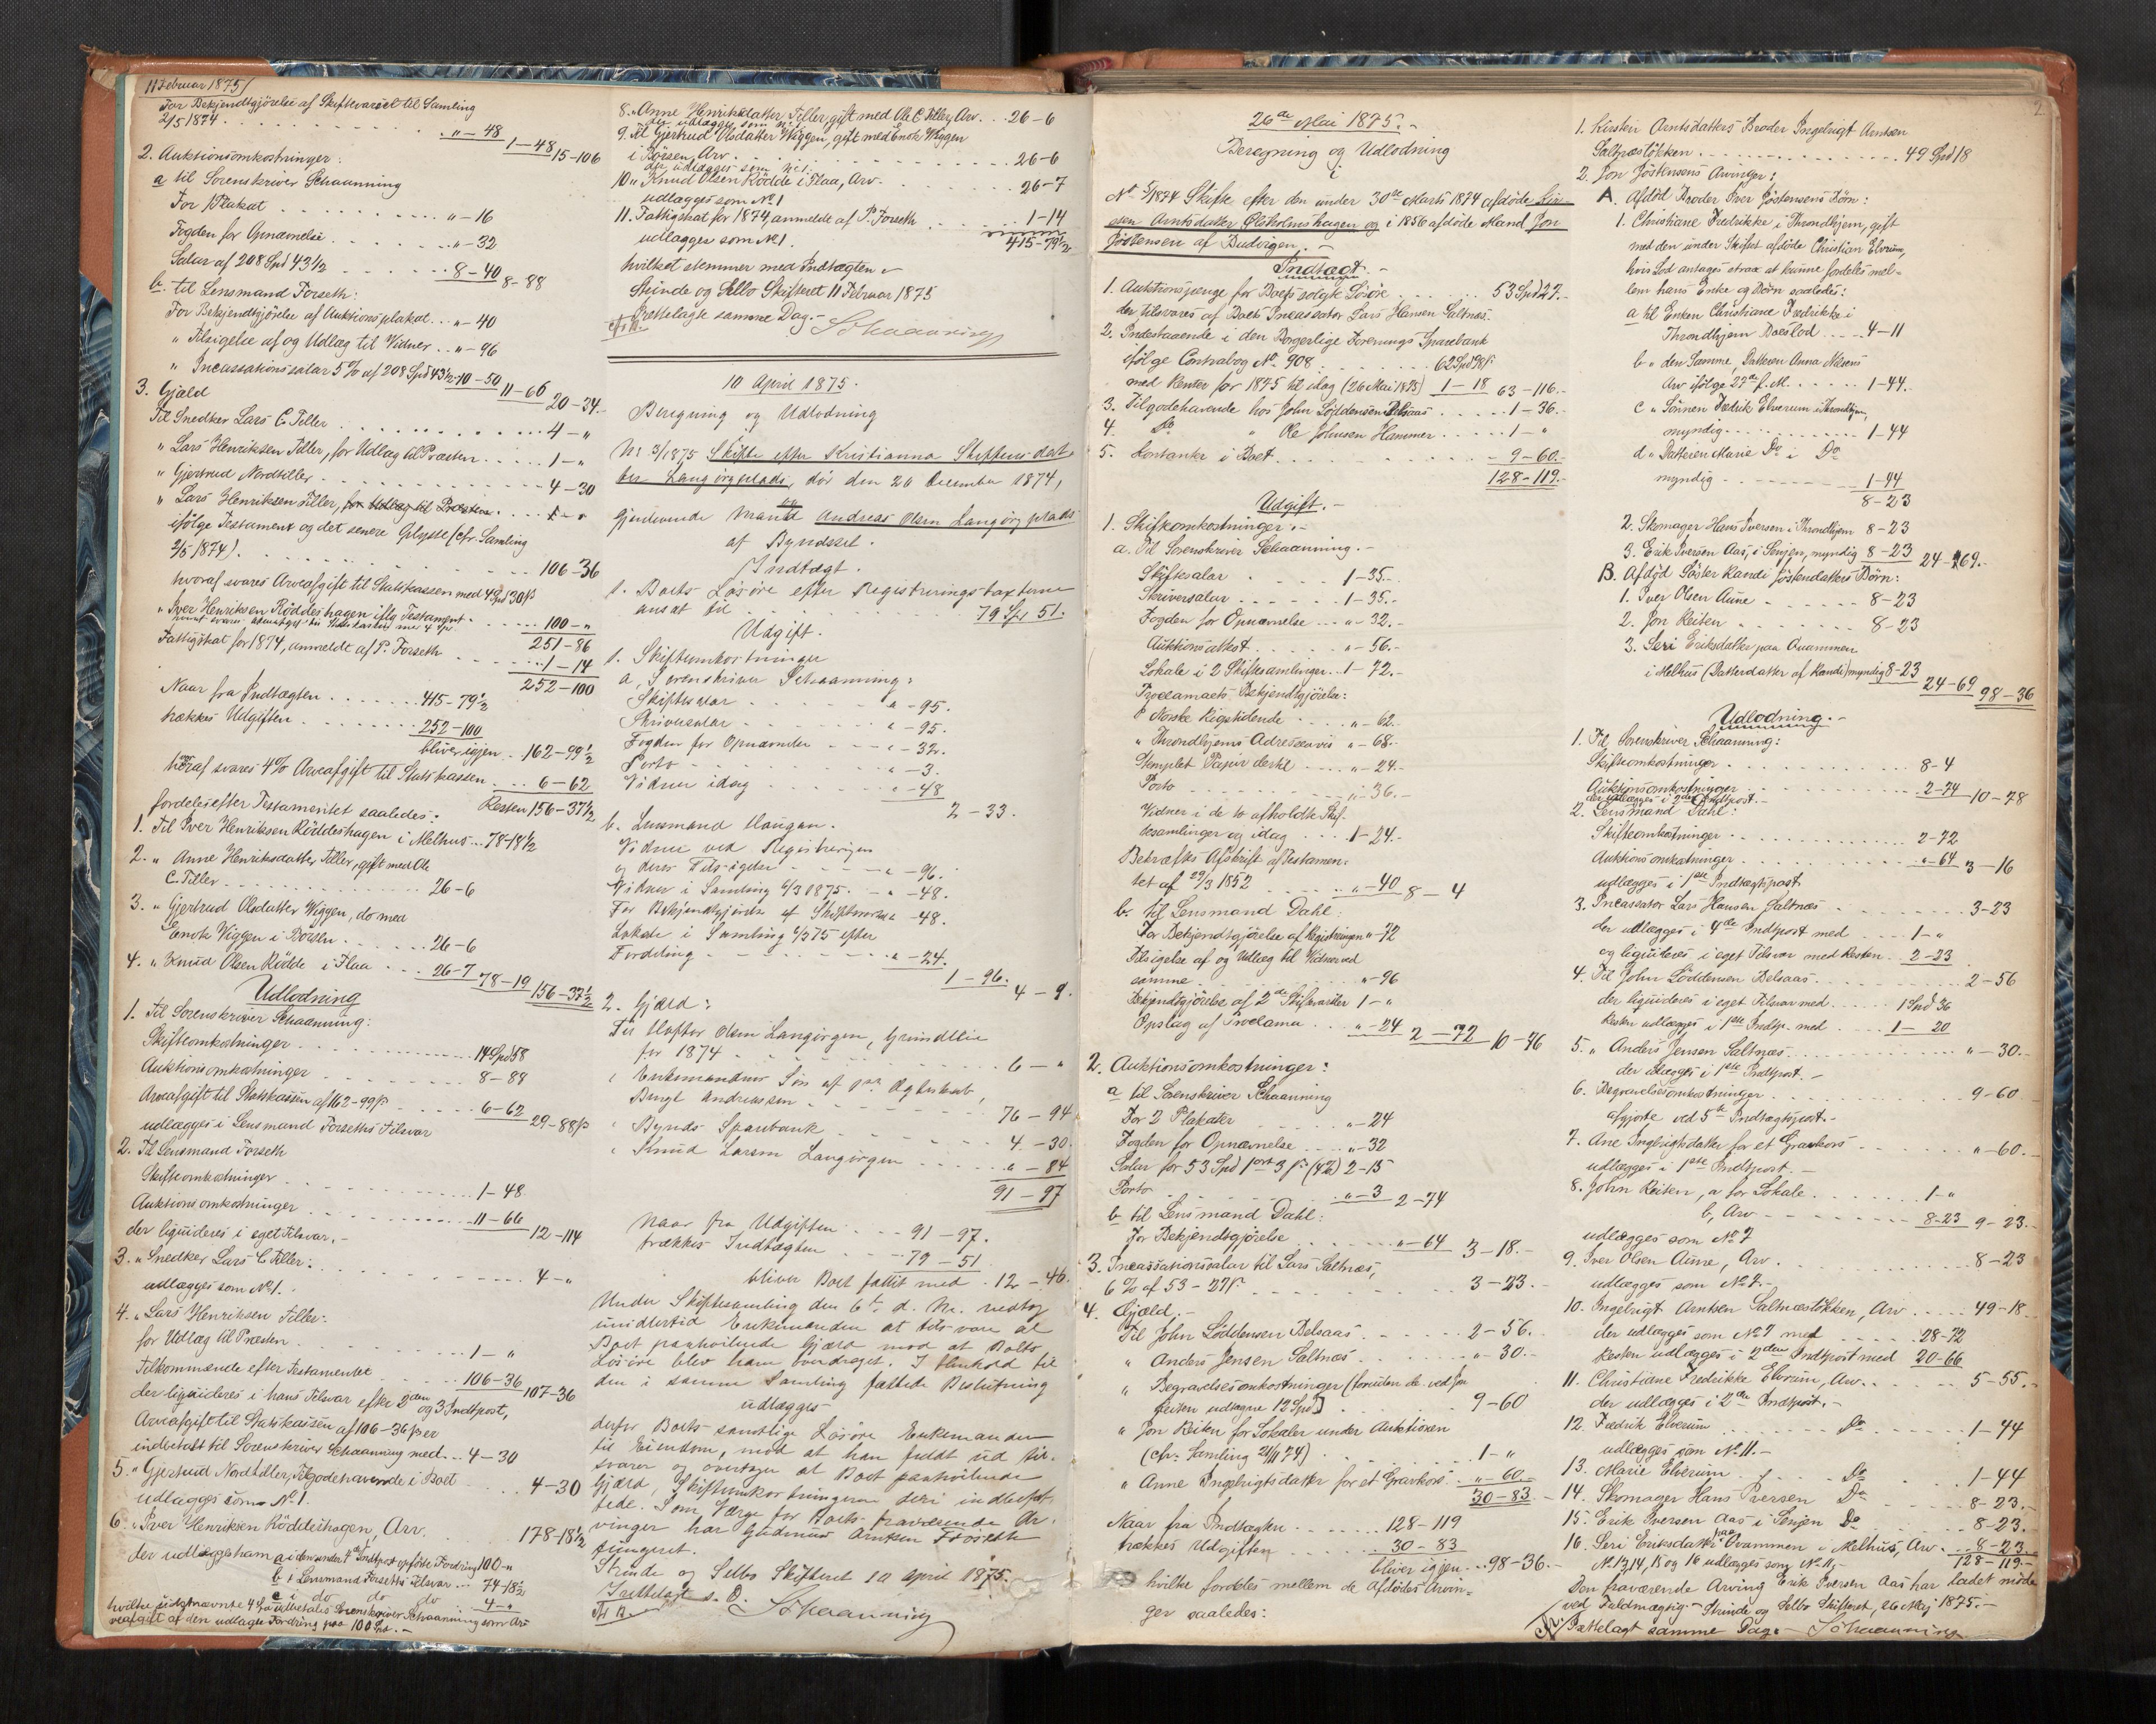 11 Februar 1875/
For Bekjendtgjörelse af Skiftevarsel til Samling
2/5 1874 . . . „ - 48
1-48 15-106
2. Auktionsomkostninger:
a til Sorenskriver Schaanning
For 1 Plakat . . . „ - 16
Fogden for Opnævnelse . . . „ - 32
Salar af 208 Spd 43 1/2 . . . 8-40 8-88
b. til Lensmand Forseth:
For Bekjendtgjörelse af Auktionsplakat . . „ - 40
„ Tilsigelse af og Udlæg til Vidner . . „ - 96
„ Incassationssalar 5% af 208 Spd 43 1/2 10-50 11-66
20-34
3. Gjæld
Til Snedker Lars C. Tiller . . . 4 - „
„ Lars Henriksen Tiller, for Udlæg til Præsten . . . 1 - „
„ Gjertrud Nordtiller . . . 4-30
„ Lars Henriksen Tiller, for Udlæg til Præsten . . . 1 - „
ifölge Testament og det senere Oplyste (cfr. Samling
2/5 1874) . . . 106-36
hvoraf svares Arveafgift til Statskassen med 4 Spd 30 ß
„ Iver Henriksen Röddeshagen iflg Testament . . . 100 - „
251-86
Fattigskat for 1874, anmeldt af P. Forseth . . . 1-14
252-100
Naar fra Indtægten . . . 415-79 1/2
trækkes Udgiften . . . 252-100
bliver igjen . . 162-99 1/2
hvoraf svares 4% Arveafgift til Statskassen . . . 6-62
Resten 156-37 1/2
fordeles efter Testamentet saaledes:
1. Til Iver Henriksen Röddeshagen i Melhus . . . 78-18 1/2
2. „ Anne Henriksdatter Tiller, gift med Ole
C. Tiller . . . 26-6
3. „ Gjertrud Olsdatter Wiggen, do med
Enok Viggen i Börsen . . . 26-6
4. „ Knud Olsen Rödde i Flaa . . . 26-7 78-19 156-37 1/2
Udlodning
1. Til Sorenskriver Schaanning:
Skifteomkostninger . . . 14 Spd 58
Auktionsomkostninger . . . 8-88
Arveafgift til Statskassen af 162-99 ß . . . 6-62 29-88 ß
udlægges i Lensmand Forseths Tilsvar
2. Til Lensmand Forseth
Skifteomkostninger . . . 1-48
Auktionsomkostninger . . . 11-66 12-114
der liquideres i eget Tilsvar. -
3. „ Snedker Lars C. Tiller: . . . 4 - „
udlægges som No 1. .
4. „ Lars Henriksen Tiller:
for Udlæg til Præsten . . . 1 - „
Tilkommende efter Testamentet . . . 106-36 107-36
der liquideres i hans Tilsvar efter 2den og 3 Indtpost,
Arveafgift til Statskassen af 106-36 ß er
indbetalt til Sorenskriver Schaanning med . . 4-30
5. „ Gjertrud Nordtiller, Tilgodehavende i Boet . . . 4-30
udlægges som No 1.
6. „ Iver Henriksen Röddeshagen, Arv. . . . 178-18 1/2
der udlægges ham a i den under 4de Indtpost opförte Fordring 100 - „
b i Lensmand Forseths Tilsvar . . . 74-18 1/2
c i do do do . . . 4 - „
hvilke sidstnævnte 4 Spd udbetales Sorenskriver Schaanning som Ar-
veafgift af den udlagte Fordring paa 100 Spd. -
8. „ Anne Henriksdatter Tiller, gift med Ole C. Tiller, Arv. . . 26-6
der udlægges som No 1
9. Til Gjertrud Olsdatter Wiggen, gift med Enok Wiggen
i Börsen, Arv. . . . 26-6
der udlægges som No 1.
10 „ Knud Olsen Rödde i Flaa, Arv. . . . 26-7
udlægges som No 1
11. Fattigskat for 1874, anmeldt af P. Forseth . . . 1-14
udlægges som No 1. 415-79 1/2
hvilket stemmer med Indtægten.
Strinde og Selbo Skifteret 11 Februar 1875
Frettelagte samme Dag. - Schaanning
10 April 1875.
Beregning og Udlodning
i
Nr. 3/1875 Skifte efter Kristianna Steffensdat-
ter Langörgplads, död den 26 December 1874,
Gjenlevende Mand Andreas Olsen Langörgplads
af Byndsset.
Indtægt.
1. Boets Lösöre efter Registreringstaxterne
ansat til . . . 79 Sp 51.
Udgift.
1. Skifteomkostninger
a, Sorenskriver Schaanning:
Skiftesalar . . . „ - 95.
Skriversalar . . . „ - 95.
Fogden for Opnævnelse . . . „ - 32.
Porto . . . „ - 3.
Vidner idag . . . „ - 48
2 - 33.
b. Lensmand Haugan.
Vidner ved Registreringen
og deres Tilsigelse . . . „ - 96.
Vidner i Samling 6/3 1875 . . „ - 48.
For Bekjendtgjörelse af Skiftevarsel „ - 48.
Lokale i Samling 6/3 75 efter
Fordeling . . . „ - 24.
1 - 96. 4 - 9.
2. Gjæld:
Til Kloster Olsen Langörgen, Grundleie
for 1874 . . . 6 - „
„ Enkemandens Sön af förste Ægteskab,
Bengt Andreassen . . . 76 - 94
„ Bynds Sparebank . . . 4 - 30.
„ Knud Larsen Langörgen . . . „ - 84
91 - 97
Naar fra Udgiften . . . 91 - 97.
trækkes Indtægten . . . 79 - 51
bliver Boet fallit med . 12 - 46.
Under Skiftesamling den 6te d. M. vedtog
imidlertid Enkemanden at tilsvare al
Boet paahvilende Gjæld mod at Boets
Lösöre blev ham overdraget. I Henhold til
den i samme Samling fattede Beslutning
udlægges
derfor Boets samtlige Lösöre Enkemanden
til Eiendom, mod at han fuldt ud til-
svarer og overtager al Boet paahvilende
Gjæld, Skifteomkostningerne deri indbefat-
tede. Som Værge for Boets fraværende Ar-
vinger har Gudmund Arntsen Froseth
fungeret.
Strinde og Selbo Skifteret 10 April 1875.
Irettelagt s. D. Schaanning
26de Mai 1875. -
Beregning og Udlodning
i
No 5/1874 Skifte efter den under 30te Marts 1874 afdöde Kir-
sten Arntsdatter Öleholmshagen og i 1856 afdöde Mand Jon
Jöstensen af Budvigen. -
Indtægt. -
1. Auktionspenge for Boets solgte Lösöre . . . 53 Spd 27. -
der tilsvares af Boets Incassator Lars Hansen Saltnæs.
2. Indestaaende i den Borgerlige Forenings Sparebank
ifölge Contrabog No 908 . . . 62 Spd 98 ß
med Renter for 1875 til idag (26 Mai 1875) 1-18 63-116. -
3. Tilgodehavende hos John Löddensen Belsaas . . . 1-36. -
4. Do „ Ole Johnsen Hammer . . . 1 - „
5. Kontanter i Boet . . . 9-60. -
128-119. -
Udgift. -
1. Skifteomkostninger. -
a. Til Sorenskriver Schaanning. -
Skiftesalar . . . 1-35. -
Skriversalar . . . 1-35. -
Fogden for Opnævnelse . . . „ - 32. -
Auktionsattest . . . „ - 56. -
Lokale i 2 Skiftesamlinger . . 1-72. -
Proclamaets Bekjendtgjörelse:
i Norske Rigstidende . . . „ - 62. -
„ Throndhjems Adresseavis „ - 68. -
Stemplet Papir dertil . . . „ - 24. -
Porto . . . „ - 36. -
Vidner i de to afholdte Skif-
tesamlinger og idag . . . 1-24. -
Bekræftet Afskrift af Testamen-
tet af 29/3 1852 . . . „ - 40 8 - 4
b. til Lensmand Dahl:
For Bekjendtgjörelse af Registreringen „ - 72
Tilsigelse af og Udlæg til Vidner ved
samme . . . „ - 96
Bekjendtgjörelse af 2de Skiftevarsler 1 - „
Opslag af Proclama . . . „ - 24 2-72 10-76
2. Auktionsomkostninger:
a til Sorenskriver Schaanning
For 2 Plakater . . . „ - 24
Fogden for Opnævnelse . . . „ - 32
Salar for 53 Spd 1 ort 3 ß (4%) 2-15
Porto . . . „ - 3 2-74
b til Lensmand Dahl:
For Bekjendtgjörelse . . . „ - 64 3-18. -
3. Incassationssalar til Lars Saltnæs,
6% af 53-27 ß . . . 3-23. -
4. Gjæld. -
Til John Löddensen Belsaas . . . 2-56. -
„ Anders Jensen Saltnæs . . . „ - 30. -
„ Begravelsesomkostninger (foruden de ved Jon
Reiten udtagne 12 Spd) . . . 9-60
„ Jon Reiten for Lokaler under Auktionen
(cfr. Samling 21/11 74) . . . 1 - „
„ Anne Ingebrigtsdatter for et Gravkors . . „ - 60. -
30-83. -
Naar fra Indtægten . . . 128-119
trækkes Udgiften . . . 30-83
bliver igjen . . 98-36. -
hvilke fordeles mellem de Afdödes Arvin-
ger saaledes:
2.
1. Kirsten Arntsdatters Broder Ingebrigt Arntsen
Saltnæstökken . . . 49 Spd 18
2. Jon Jöstensens Arvinger:
A. Afdöd Broder Iver Jöstensens Börn:
1. Christiane Fredrikke i Throndhjem, gift
med den under Skiftet afdöde Christian Elverum,
hvis Lod antages strax at kunne fordeles mel-
lem hans Enke og Börn saaledes:
a til Enken Christiane Fredrikke i
Throndhjem Boeslod . . . 4-11
b „ den Samme, Datteren Anna Nelsens
Arv ifölge 27de f. M. . . . 1-44. -
c „ Sönnen Fredrik Elverum i Throndhjem,
myndig . . . 1-44
d „ Datteren Marie Do i Do
myndig . . . 1-44
8-23
2. Skomager Hans Iversen i Throndhjem 8-23
3. Erik Iversen Aas, i Senjen, myndig 8-23 24-69. -
B. Afdöd Söster Randi Jöstendatters Börn:
1. Iver Olsen Aune . . . 8-23
2. Jon Reiten . . . 8-23
3. Seri Eriksdatter paa Qvammen
i Melhus (Datterdatter af Randi) myndig 8-23
24-69 98-36
Udlodning. -
1. Til Sorenskriver Schaanning:
Skifteomkostninger . . . 8-4
Auktionsomkostninger . . . 2-74 10-78
der udlægges i 2den Indtpost. -
2. Lensmand Dahl:
Skifteomkostninger . . . 2-72
Auktionsomkostninger . . . „ - 64 3-16
udlægges i 1ste Indtægtspost
3. Incassator Lars Hansen Saltnæs . . . 3-23
der udlægges i 4de Indtpost med . . . 1 - „
og liquideres i eget Tilsvar med Resten . 2-23
4. Til John Löddensen Belsaas . . . 2-56
der liquideres i eget Tilsvar med . . . 1 Spd 36
Resten udlægges i 1ste Indtp. med . . . 1 - 20
5. „ Anders Jensen Saltnæs . . . „ - 30. -
der udlægges i 1ste Indtpost. -
6. Begravelsesomkostninger . . . 9-60
afgjorte ved 5te Indtægtspost. -
7. Ane Ingebrigtsdatter for et Gravkors . . . „ - 60. -
udlægges i 1ste Indtpost. -
8. John Reiten, a for Lokale . . . 1 - „
b, Arv . . . 8-23 9-23. -
udlægges som No 7
9. Iver Olsen Aune, Arv . . . 8-23
udlægges som No 7. -
10. Ingebrigt Arntsen Saltnæstökken, Arv . . . 49-18.
der udlægges som No 7 med . . . 28-72
Resten udlægges i 2den Indtpost med 20-66
11. Christiane Fredrikke Elverum, Arv . . . 5-55. -
der udlægges i 2den Indtpost. -
12. Fredrik Elverum . . . Do . . . 1-44
udlægges som No 11. -
13. Marie Elverum . . . Do . . . 1-44
14. Skomager Hans Iversen Do . . . 8-23. -
15. Erik Iversen Aas i Senjen Do . . . 8-23.
16. Seri Eriksdatter paa Qvammen i Melhus, Arv . . 8-23. -
No 13, 14, 15 og 16 udlægges som No 11, - 128-119. -
Den fraværende Arving Erik Iversen Aas har ladet möde
ved Fuldmægtig. - Strinde og Selbo Skifteret, 26 Maj 1875. -
Irettelagt samme Dag. - Schaanning